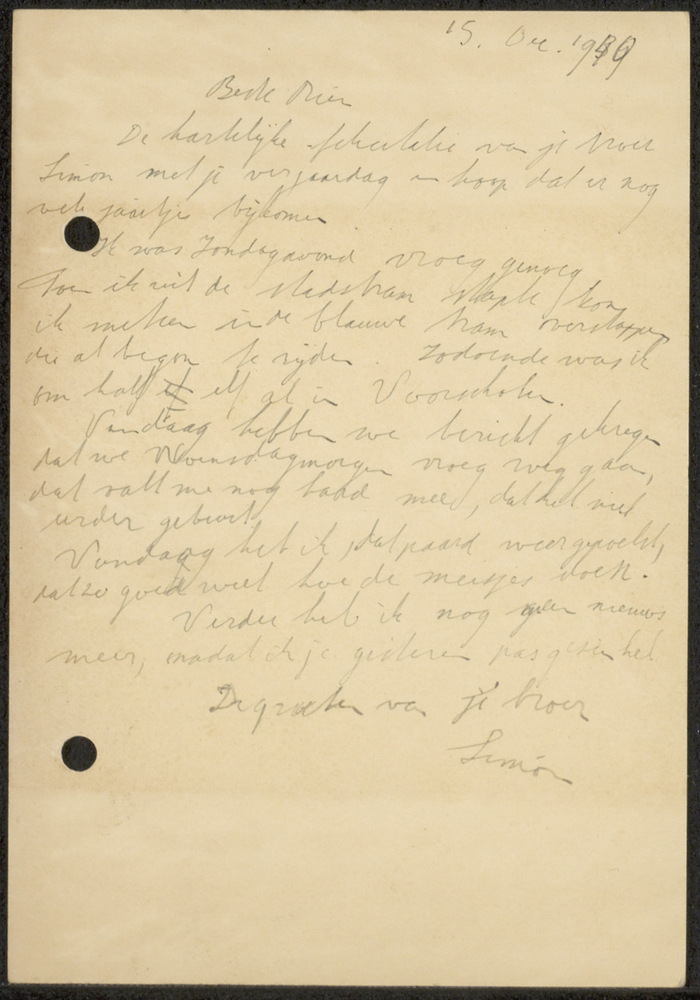 15. Dec. 1939
Beste Rien
De hartelijke felicitatie van je broer
Simon met je verjaardag en hoop dat er nog
vele jaartjes bijkomen
Ik was Zondagavond vroeg genoeg
Toen ik uit de stadstram stapte kon
ik meteen in de blauwe tram overstappen
die al begon te rijden. Zodoende was ik
om half elf al in Voorschoten.
Vandaag hebben we bericht gekregen
dat we Woensdagmorgen vroeg weg gaan,
dat valt me nog hard mee, dat het niet
eerder gebeurt
Vandaag heb ik dat paard weer gepoetst,
dat zo goed weet hoe de meisjes
Verder heb ik nog geen nieuws
meer, omdat ik je gisteren pas gezien heb
De groeten van je broer
Simon